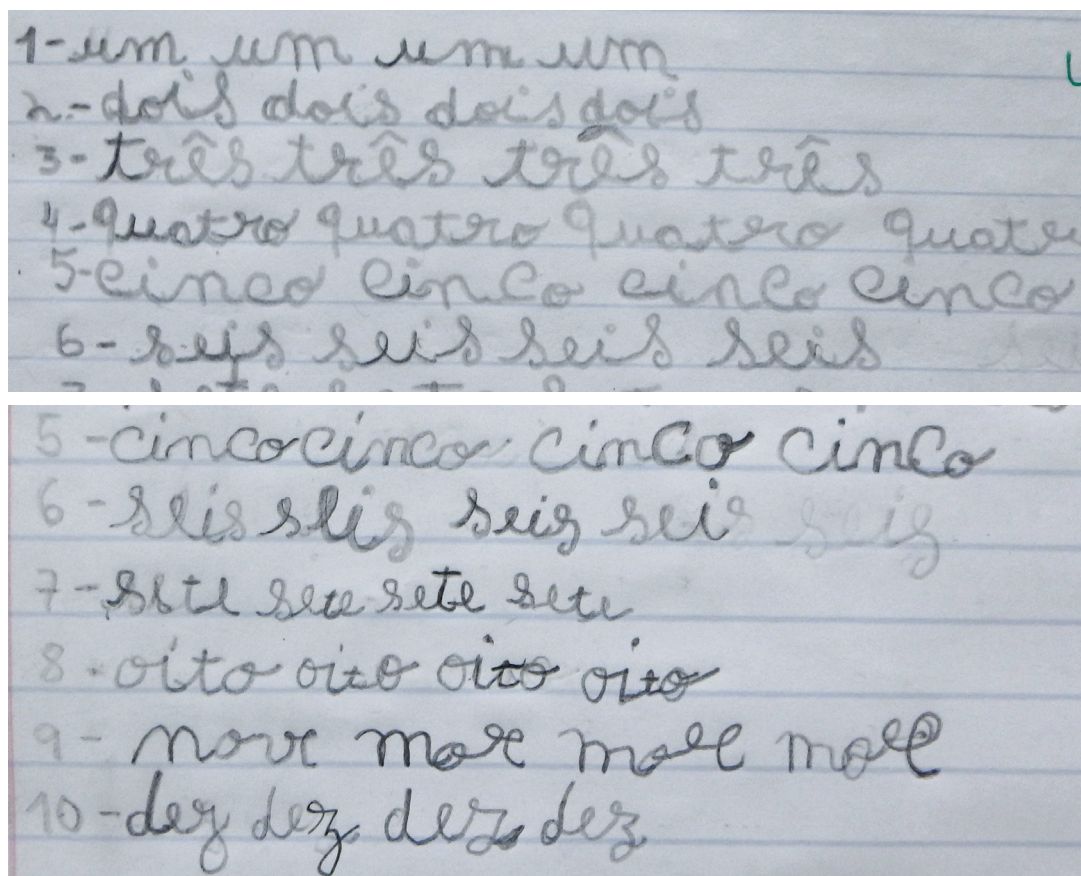 1-um um um um
2-dois dois dois dois
3-três três três três
4-quatro quatro quatro quatr
5-cinco cinco cinco cinco
6-seis seis seis seis sei
5-cinco cinco cinco cinco
6-seis seis seis seis seis
7-sete sete sete sete
8-oito oito oito oito
9-nove nove nove nove
10-dez dez dez dez